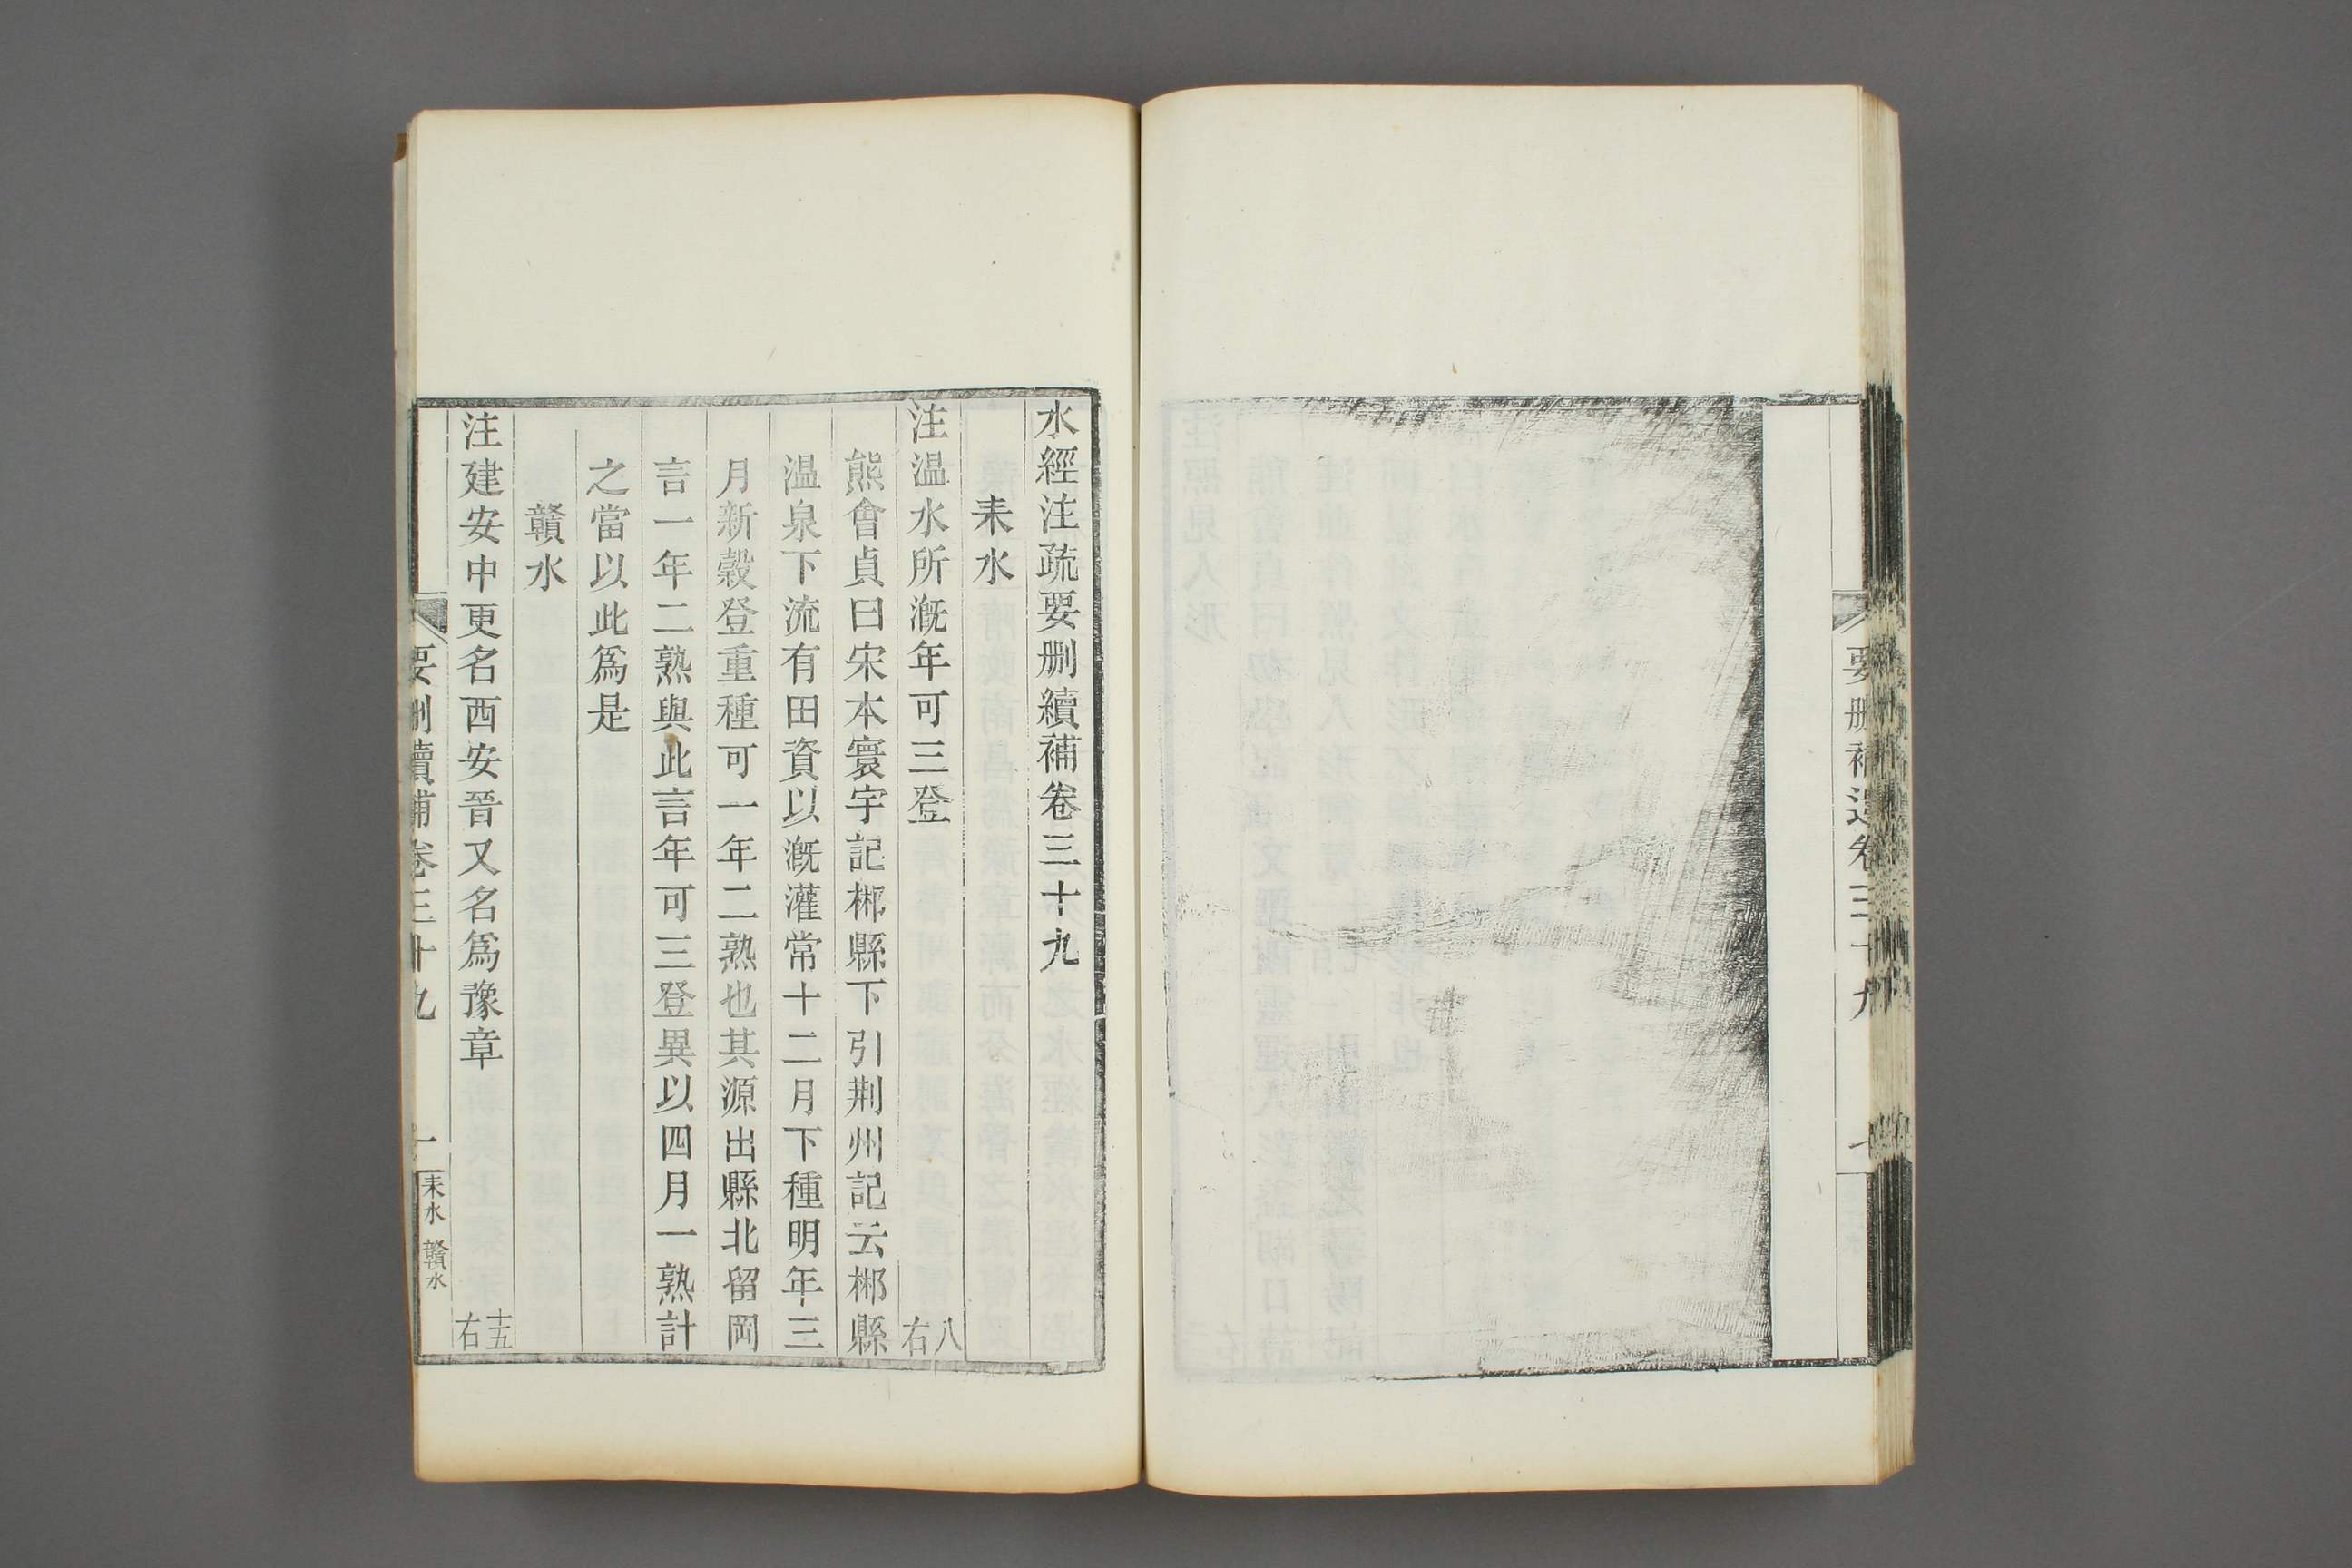 要删補遺卷三十九
水經注疏要删續補卷三十九
耒水
注温水所溉年可三登 八右
熊會貞曰宋本寰宇記郴縣下引荆州記云郴縣
温泉下流有田資以溉灌常十二月下種明年三
月新穀登重種可一年二熟也其源出縣北留岡
言一年二熟與此言年可三登異以四月一熟計
之當以此爲是
贛水
注建安中更名西安晉又名爲豫章 十五右
要删續補卷三十九 一 耒水 贛水